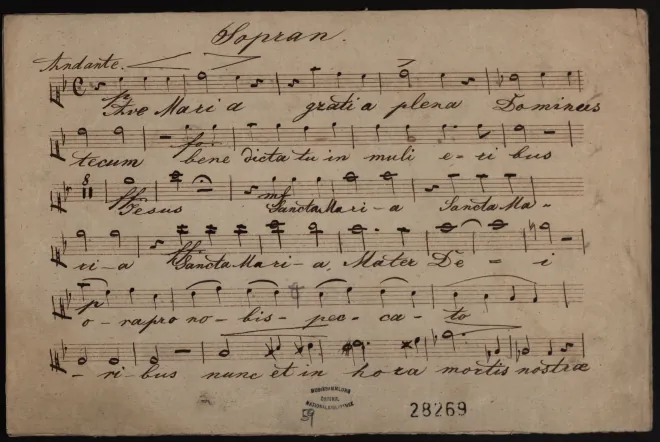 Sopran.
Andante.
p
Ave Mari a grati a plena Dominus
tecum bene dicta tu in muli e-ri bus
8
ff Jesus mf Sancta Mari-a Sancta Ma-
ri-a ff Sancta Mari-a, Mater De-i
p
o-ra pro no-bis-pec-ca-to
-ri-bus nunc et in hora mortis nostræ
59
28269